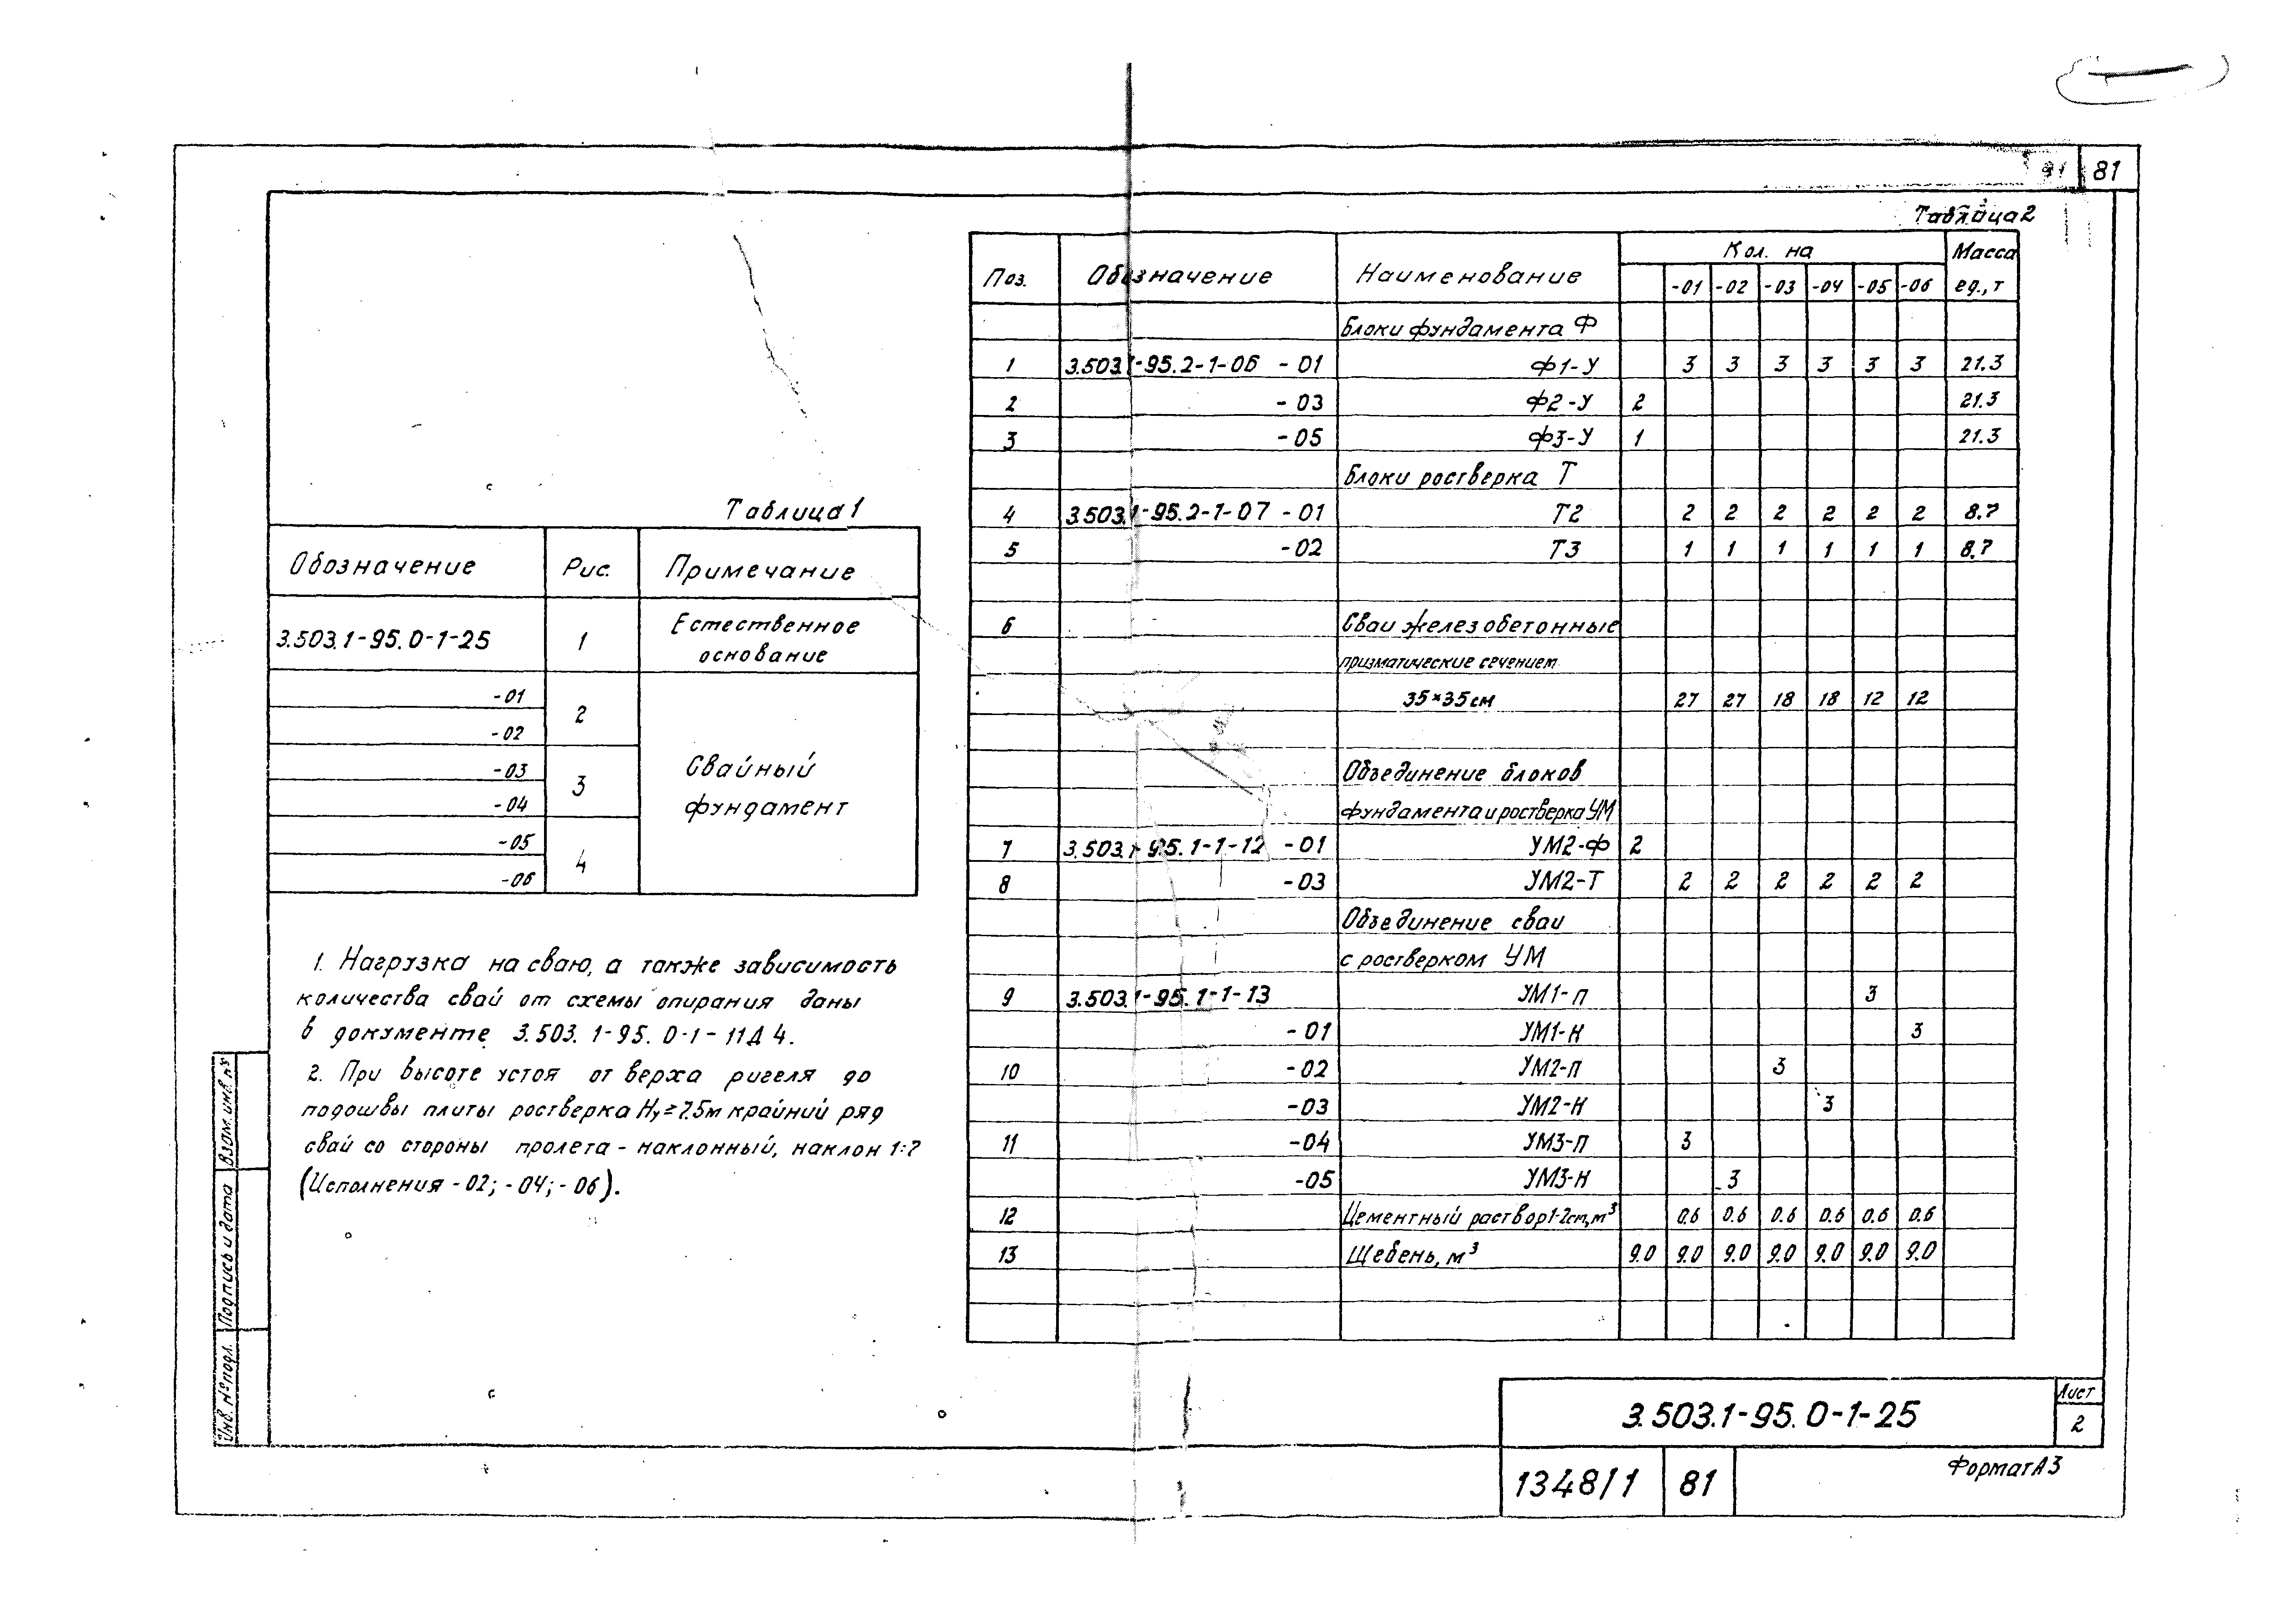 81
Таблица 1
Обозначение Рис. Примечание
3.503.1-95.0-1-25 1 Естественное основание
-01 2 Свайный фундамент
-02
-03 3
-04
-05 4
-06
1. Нагрузка на сваю, а также зависимость
количества свай от схемы опирания даны
в документе 3.503.1-95.0-1-11Д4.
2. При высоте устоя от верха ригеля до
подошвы плиты ростверка Ну≥7.5м крайний ряд
свай со стороны пролета - наклонный, наклон 1:7
(Исполнения -02; -04; -06).
Таблица 2
Поз. Обозначение Наименование Кол. на Масса ед., т
-01 -02 -03 -04 -05 -06
Блоки фундамента Ф
1 3.503.1-95.2-1-06 -01 Ф1-У 3 3 3 3 3 3 21.3
2 -03 Ф2-У 2 21.3
3 -05 Ф3-У 1 21.3
Блоки ростверка Т
4 3.503.1-95.2-1-07 -01 Т2 2 2 2 2 2 2 8.7
5 -02 Т3 1 1 1 1 1 1 8.7
6 Сваи железобетонные
призматические сечением
35×35см 27 27 18 18 12 12
Объединение блоков
фундамента и ростверка УМ
7 3.503.1-95.1-1-12 -01 УМ2-Ф 2
8 -03 УМ2-Т 2 2 2 2 2 2
Объединение сваи
с ростверком УМ
9 3.503.1-95.1-1-13 УМ1-П 3
-01 УМ1-Н 3
10 -02 УМ2-П 3
-03 УМ2-Н 3
11 -04 УМ3-П 3
-05 УМ3-Н 3
12 Цементный раствор 1-2ст, м³ 0.6 0.6 0.6 0.6 0.6 0.6
13 Щебень, м³ 9.0 9.0 9.0 9.0 9.0 9.0 9.0
Взам. инв. №
Подпись и дата
Инв. № подл.
3.503.1-95.0-1-25
Лист
2
1348/1 81
Формат А3